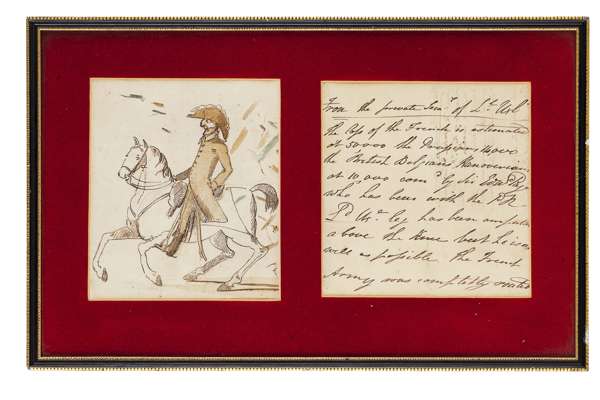 From the private Secy of Ld Uxb
the loss of the French is estimated
at 50000 the Prussians 14000
the British Belgians Hanoverians
at 10,000 comd by Sir
who has been with the
Ld Ux leg has been amputa
above the knee but he is as
well as possible the French
Army was completely routed